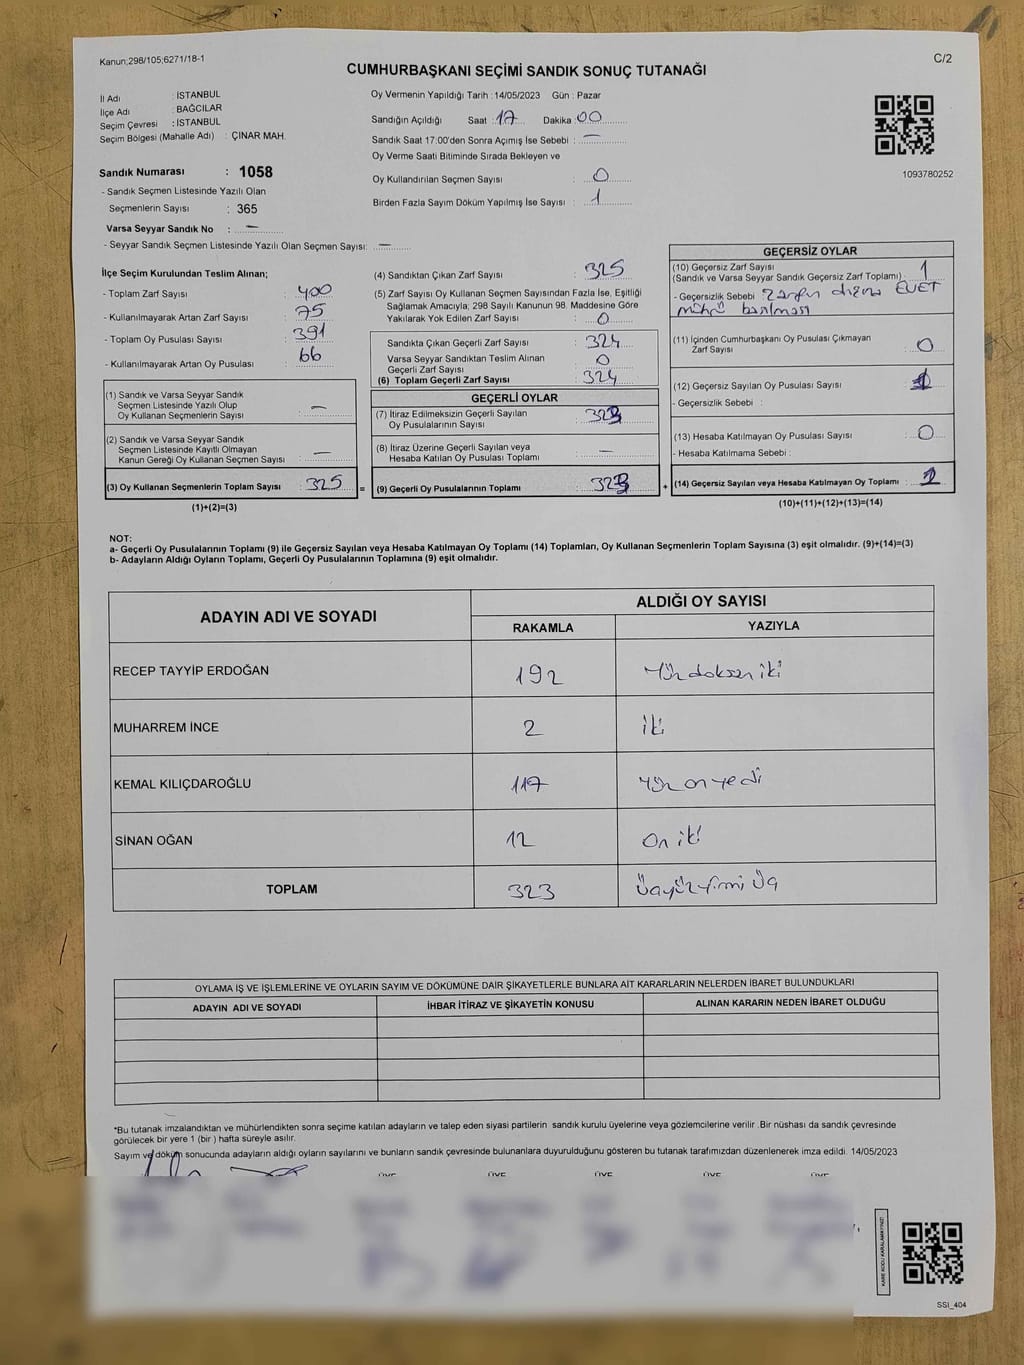 Kanun;298/105;6271/18-1
C/2
CUMHURBAŞKANI SEÇİMİ SANDIK SONUÇ TUTANAĞI
İl Adı : İSTANBUL
İlçe Adı : BAĞCILAR
Seçim Çevresi : İSTANBUL
Seçim Bölgesi (Mahalle Adı) : ÇINAR MAH.
Oy Vermenin Yapıldığı Tarih : 14/05/2023 Gün : Pazar
Sandığın Açıldığı Saat : 17 Dakika : 00
Sandık Saat 17:00'den Sonra Açımış İse Sebebi : —
Oy Verme Saati Bitiminde Sırada Bekleyen ve
Oy Kullandırılan Seçmen Sayısı : 0
Birden Fazla Sayım Döküm Yapılmış İse Sayısı : 1
1093780252
Sandık Numarası : 1058
- Sandık Seçmen Listesinde Yazılı Olan
Seçmenlerin Sayısı : 365
Varsa Seyyar Sandık No : —
- Seyyar Sandık Seçmen Listesinde Yazılı Olan Seçmen Sayısı: —
İlçe Seçim Kurulundan Teslim Alınan;
- Toplam Zarf Sayısı : 400
- Kullanılmayarak Artan Zarf Sayısı : 75
- Toplam Oy Pusulası Sayısı : 391
- Kullanılmayarak Artan Oy Pusulası : 66
(1) Sandık ve Varsa Seyyar Sandık
Seçmen Listesinde Yazılı Olup
Oy Kullanan Seçmenlerin Sayısı : —
(2) Sandık ve Varsa Seyyar Sandık
Seçmen Listesinde Kayıtlı Olmayan
Kanun Gereği Oy Kullanan Seçmen Sayısı : —
(3) Oy Kullanan Seçmenlerin Toplam Sayısı : 325
(1)+(2)=(3)
(4) Sandıktan Çıkan Zarf Sayısı : 325
(5) Zarf Sayısı Oy Kullanan Seçmen Sayısından Fazla İse, Eşitliği
Sağlamak Amacıyla; 298 Sayılı Kanunun 98. Maddesine Göre
Yakılarak Yok Edilen Zarf Sayısı : 0
Sandıkta Çıkan Geçerli Zarf Sayısı : 324
Varsa Seyyar Sandıktan Teslim Alınan
Geçerli Zarf Sayısı : 0
(6) Toplam Geçerli Zarf Sayısı : 324
GEÇERLİ OYLAR
(7) İtiraz Edilmeksizin Geçerli Sayılan
Oy Pusulalarının Sayısı : 323
(8) İtiraz Üzerine Geçerli Sayılan veya
Hesaba Katılan Oy Pusulası Toplamı : —
= (9) Geçerli Oy Pusulalarının Toplamı : 323
GEÇERSİZ OYLAR
(10) Geçersiz Zarf Sayısı
(Sandık ve Varsa Seyyar Sandık Geçersiz Zarf Toplamı) : 1
- Geçersizlik Sebebi : Zarfın dışına EVET
mührü basılması
(11) İçinden Cumhurbaşkanı Oy Pusulası Çıkmayan
Zarf Sayısı : 0
(12) Geçersiz Sayılan Oy Pusulası Sayısı : 1
- Geçersizlik Sebebi :
(13) Hesaba Katılmayan Oy Pusulası Sayısı : 0
- Hesaba Katılmama Sebebi :
+ (14) Geçersiz Sayılan veya Hesaba Katılmayan Oy Toplamı : 2
(10)+(11)+(12)+(13)=(14)
NOT:
a- Geçerli Oy Pusulalarının Toplamı (9) ile Geçersiz Sayılan veya Hesaba Katılmayan Oy Toplamı (14) Toplamları, Oy Kullanan Seçmenlerin Toplam Sayısına (3) eşit olmalıdır. (9)+(14)=(3)
b- Adayların Aldığı Oyların Toplamı, Geçerli Oy Pusulalarının Toplamına (9) eşit olmalıdır.
ADAYIN ADI VE SOYADI
ALDIĞI OY SAYISI
RAKAMLA YAZIYLA
RECEP TAYYİP ERDOĞAN 192 Yüzdoksan iki
MUHARREM İNCE 2 iki
KEMAL KILIÇDAROĞLU 117 Yüz on yedi
SİNAN OĞAN 12 On iki
TOPLAM 323 Üçyüzyirmi Üç
OYLAMA İŞ VE İŞLEMLERİNE VE OYLARIN SAYIM VE DÖKÜMÜNE DAİR ŞİKAYETLERLE BUNLARA AİT KARARLARIN NELERDEN İBARET BULUNDUKLARI
ADAYIN ADI VE SOYADI İHBAR İTİRAZ VE ŞİKAYETİN KONUSU ALINAN KARARIN NEDEN İBARET OLDUĞU
*Bu tutanak imzalandıktan ve mühürlendikten sonra seçime katılan adayların ve talep eden siyasi partilerin sandık kurulu üyelerine veya gözlemcilerine verilir .Bir nüshası da sandık çevresinde
görülecek bir yere 1 (bir ) hafta süreyle asılır.
Sayım ve döküm sonucunda adayların aldığı oyların sayılarını ve bunların sandık çevresinde bulunanlara duyurulduğunu gösteren bu tutanak tarafımızdan düzenlenerek imza edildi. 14/05/2023
ÜYE ÜYE ÜYE ÜYE ÜYE
KARE KODU KARALAMAYINIZ!
SSI_404